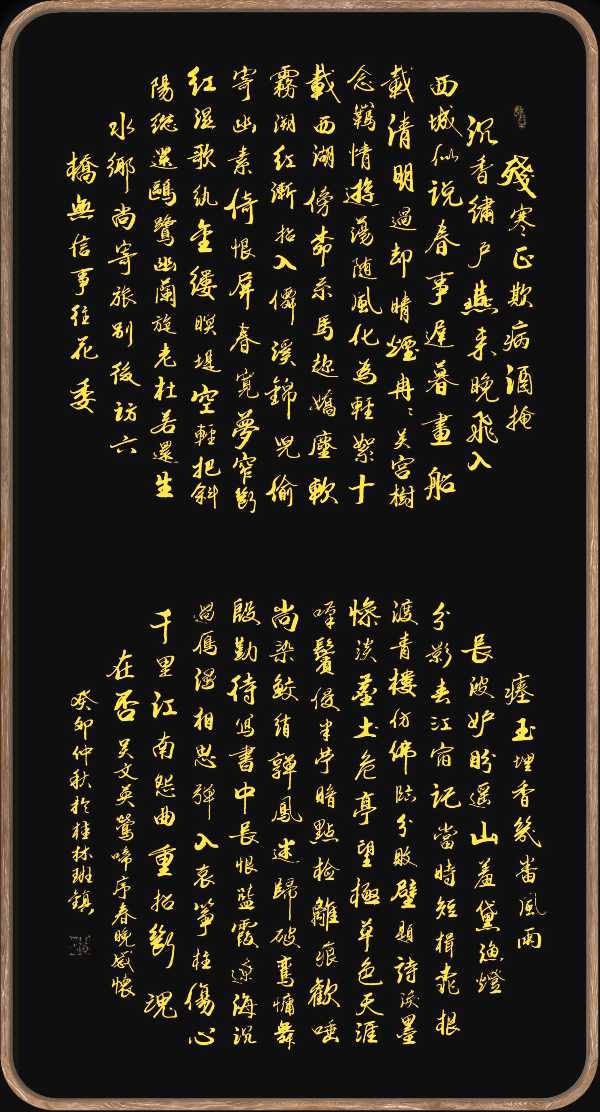 殘寒正欺病酒掩
沉香繡户燕来晚飛入
西城似説春事遲暮畫船
載清明過却晴煙冉冉吴宫樹
念羈情遊蕩随風化為輕絮十
載西湖傍柳系馬趂嬌塵軟
霧溯紅漸招入僊溪錦兒偷
寄幽素倚恨屏春寬夢窄斷
红湿歌紈金縷暝堤空輕把斜
陽總還鷗鷺幽蘭旋老杜若還生
水鄉尚寄旅别後訪六
橋無信事往花委
瘞玉埋香幾番風雨
長波妒盼遥山羞黛漁燈
分影春江宿記當時短楫桃根
渡青樓仿佛臨分敗壁題詩淚墨
慘淡塵土危亭望極草色天涯
嘆鬢侵半苧暗點檢離痕歡唾
尚染鮫綃嚲鳳迷歸破鸞慵舞
殷勤待寫書中長恨藍霞遼海沉
過雁漫相思彈入哀箏柱傷心
千里江南怨曲重招斷魂
在否 吴文英鶯啼序春晚感懷
癸卯仲秋於桂林